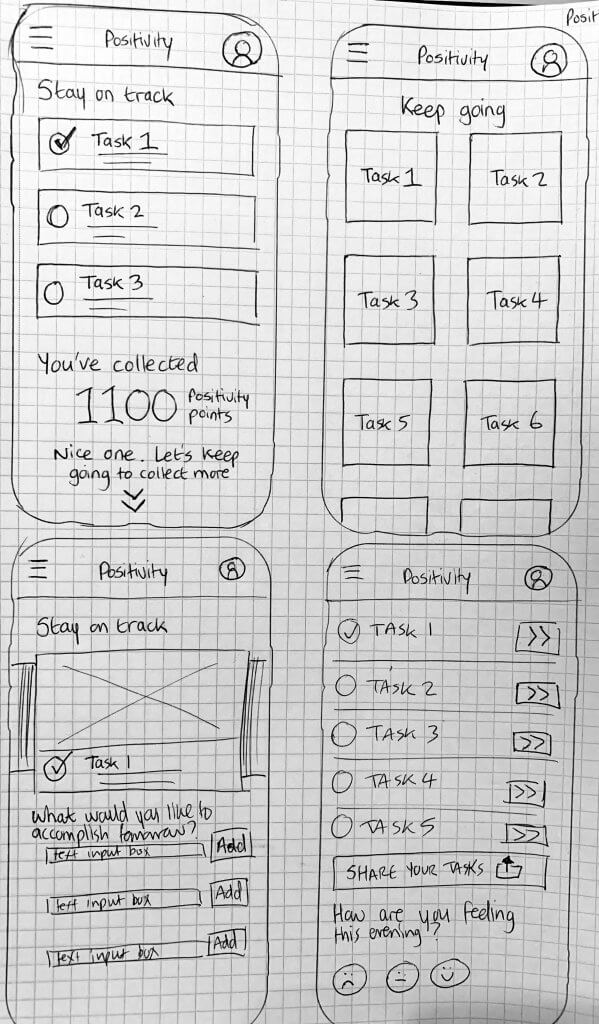 Positivity
Stay on track
Task 1
Task 2
Task 3
You've collected
1100 Positivity points
Nice one. Let's keep
going to collect more
Posit
Positivity
Keep going
Task 1
Task 2
Task 3
Task 4
Task 5
Task 6
Positivity
Stay on track
Task 1
What would you like to
accomplish tomorrow?
text input box
Add
text input box
Add
Text input box
Add
Positivity
TASK 1
>>
TASK 2
>>
TASK 3
>>
TASK 4
>>
TASK 5
>>
SHARE YOUR TASKS
How are you feeling
this evening?